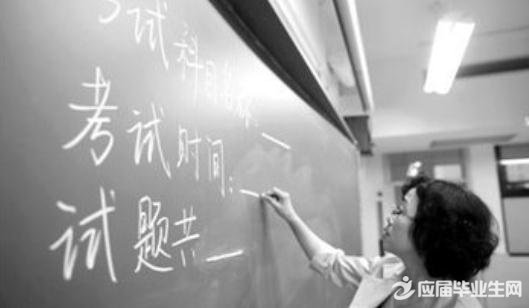 考试科目名称:__
考试时间:__
试题共__
应届毕业生网